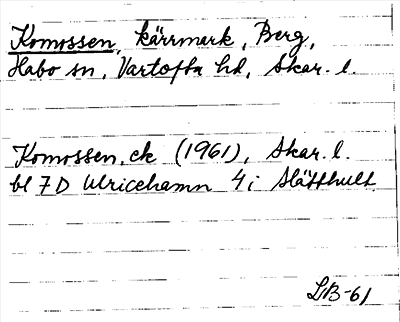 Komossen, kärrmark, Berg,
Habo sn, Vartofta hd, Skar. l.
Komossen, ek (1961), Skar. l.
bl 7D Ulricehamn 4i Slätthult
LB-61